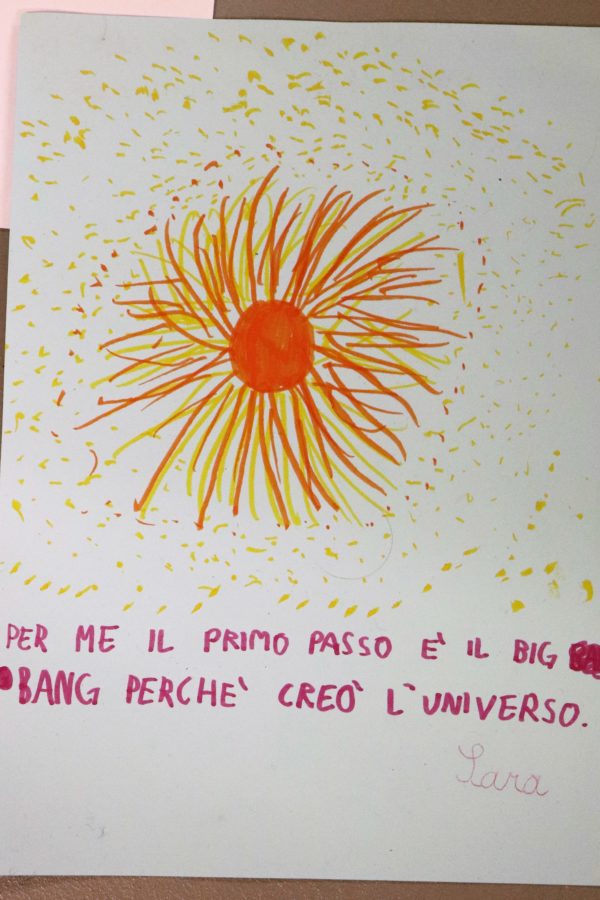 PER ME IL PRIMO PASSO E' IL BIG
BANG PERCHE' CREO' L'UNIVERSO.
Lara